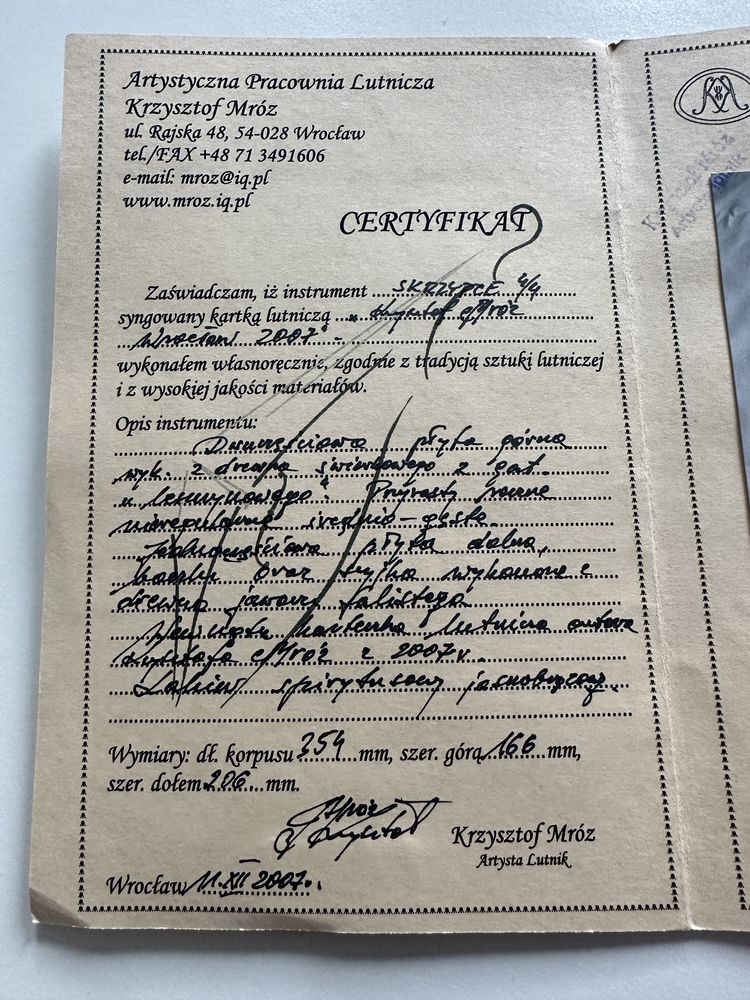 Artystyczna Pracownia Lutnicza
Krzysztof Mróz
ul. Rajska 48, 54-028 Wrocław
tel./FAX +48 71 3491606
e-mail: mroz@iq.pl
www.mroz.iq.pl
CERTYFIKAT
Zaświadczam, iż instrument SKRZYPCE 4/4
syngowany kartką lutniczą „Krzysztof Mróz
Wrocław 2007"
wykonałem własnoręcznie, zgodnie z tradycją sztuki lutniczej
i z wysokiej jakości materiałów.
Opis instrumentu:
Dwuczęściowa płyta górna
wyk. z drewna świerkowego z gat.
Przyrosty roczne
średnio-gęste.
Jednoczęściowa płyta dolna,
boczki oraz wykonane z
drewna jawora falistego
Wewnątrz karteczka lutnicza autora
Krzysztofa Mróz z 2007r.
Lakier spirytusowy jasnobrązowy.
Wymiary: dł. korpusu 354 mm, szer. górą 166 mm,
szer. dołem 206 mm.
Mróz
Krzysztof
Krzysztof Mróz
Artysta Lutnik
Wrocław 11.XII 2007r.